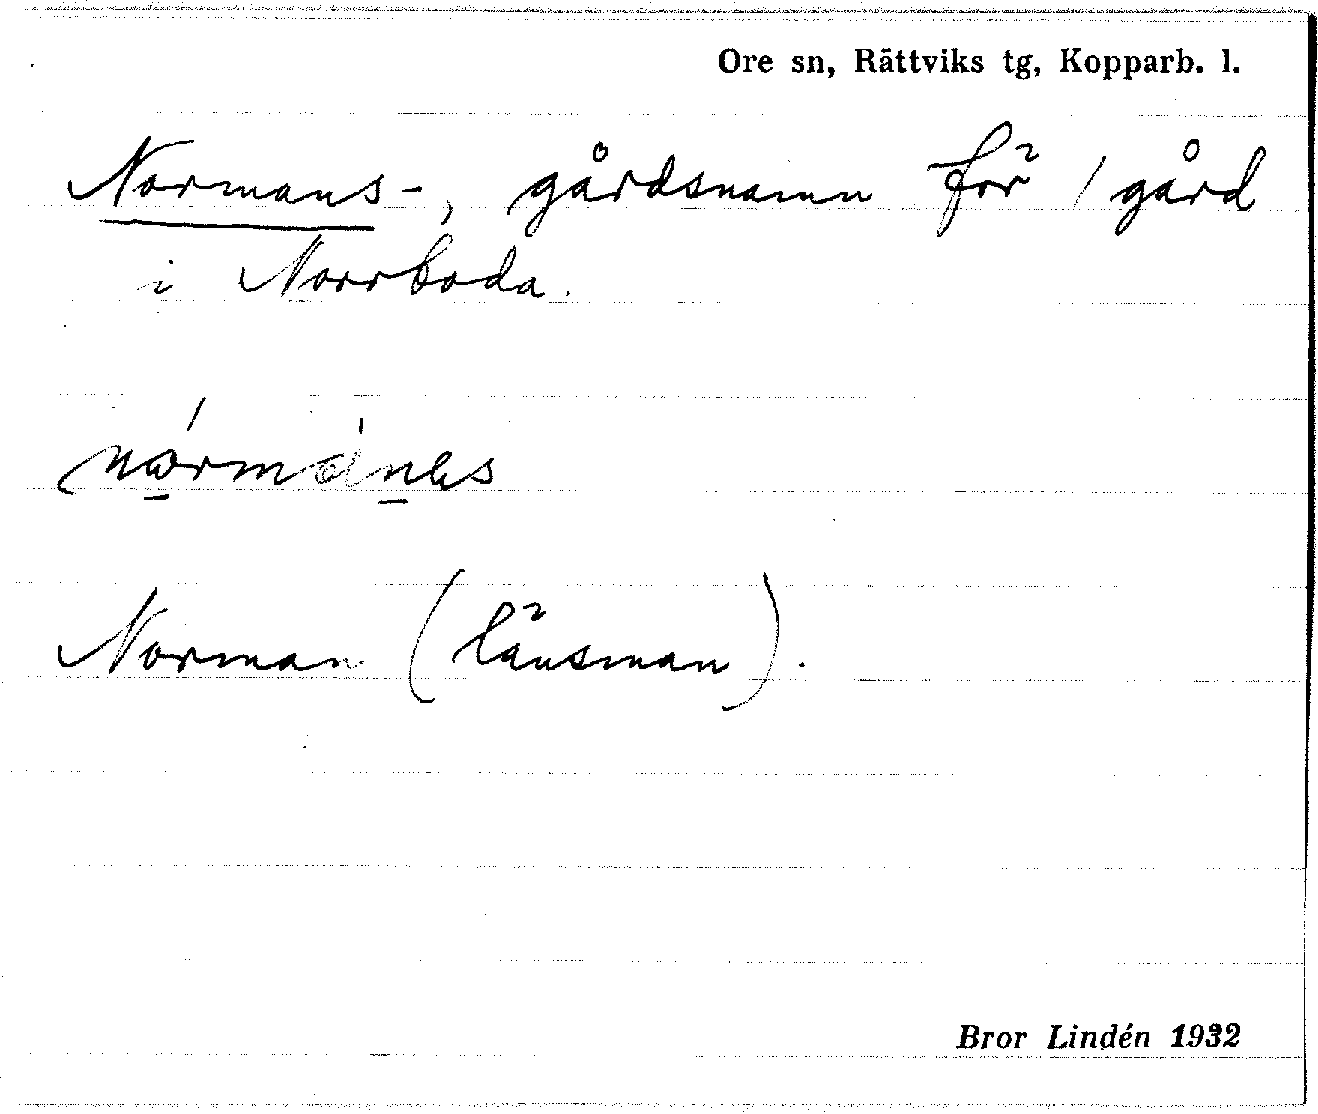 Ore sn, Rättviks tg, Kopparb. l.
Normans-, gårdsnamn för 1 gård
i Norrboda.
Norman (länsman).
Bror Lindén 1932